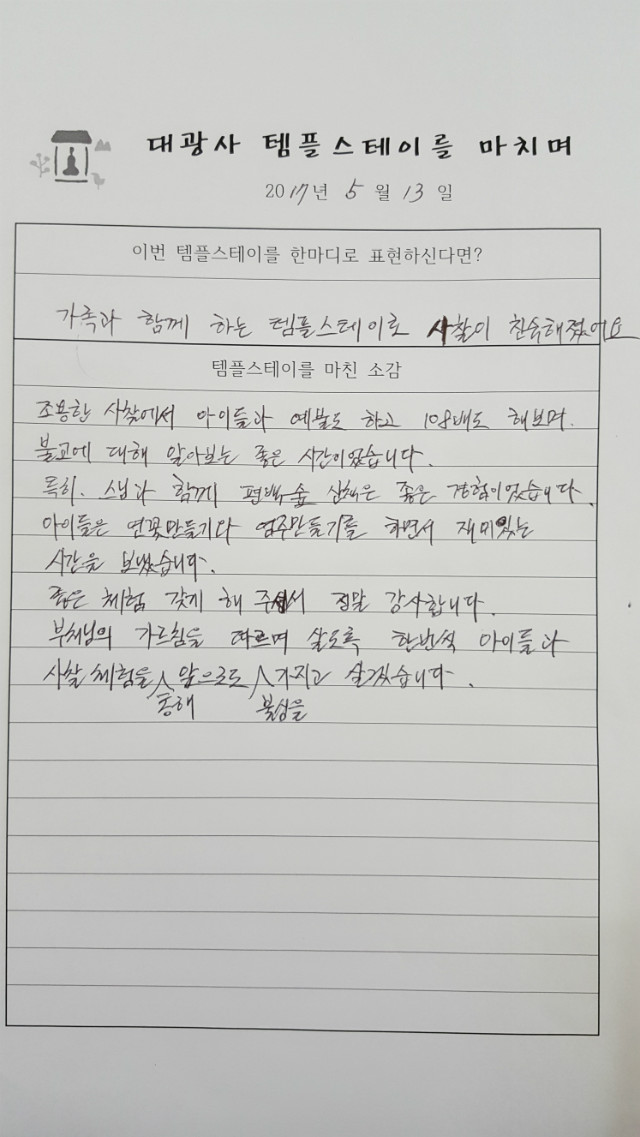 대광사 템플스테이를 마치며
2017년 5월 13일
이번 템플스테이를 한마디로 표현하신다면?
가족과 함께 하는 템플스테이로 사찰이 친숙해졌어요
템플스테이를 마친 소감
조용한 사찰에서 아이들과 예불도 하고 108배도 해보며.
불교에 대해 알아보는 좋은 시간이었습니다.
특히. 스님과 함께 편백숲 산책은 좋은 경험이었습니다.
아이들은 연꽃만들기다 염주만들기를 하면서 재미있는
시간을 보냈습니다.
좋은 체험 갖게 해 주셔서 정말 감사합니다.
부처님의 가르침을 따르며 살도록 한번씩 아이들과
사찰체험을 통해 앞으로도 불심을 가지고 살겠습니다.